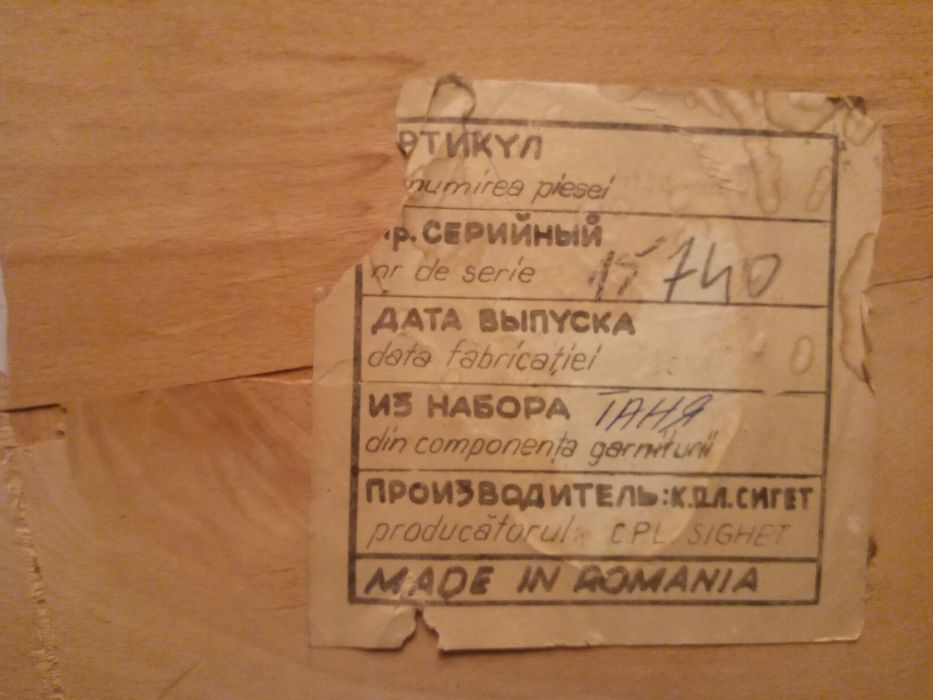 РТИКУЛ
numirea piesei
р. СЕРИЙНЫЙ
nr de serie 15740
ДАТА ВЫПУСКА
data fabricației
ИЗ НАБОРА ТАНЯ
din componența garniturii
ПРОИЗВОДИТЕЛЬ: К.П.Л. СИГЕТ
producătorul C.P.L. SIGHET
MADE IN ROMANIA